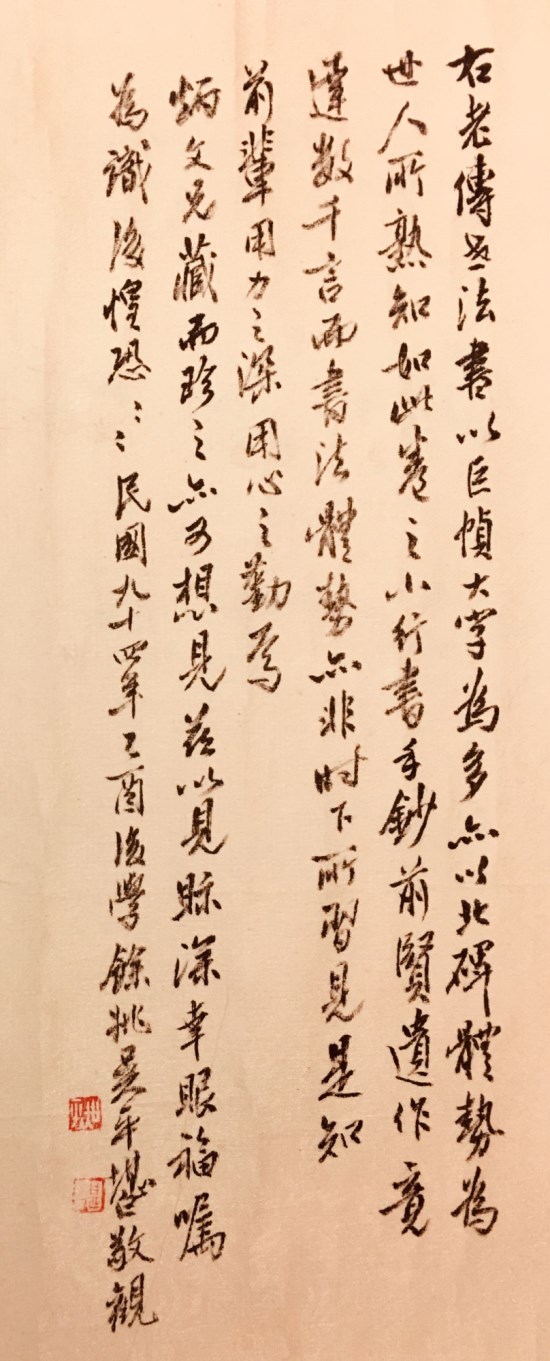 右老傳世法書以巨幀大字為多亦以北碑體勢為
世人所熟知如此卷之小行書手鈔前賢遺作竟
達數千言而書法體勢亦非時下所習見是知
前輩用力之深用心之勤焉
炳文兄藏而珍之亦可想見茲以見眎深幸眼福囑
為識後惶恐〻〻民國九十四年乙酉後學餘姚吳平堪敬觀